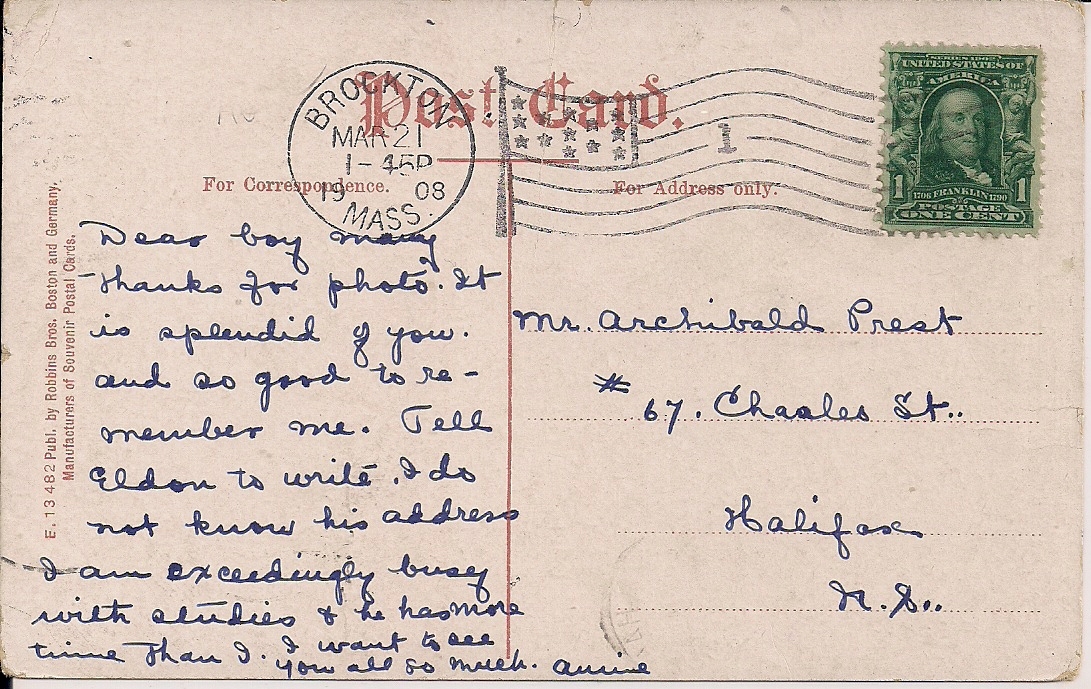 Post Card.
BROCKTON
MAR 21
1-45P
19 08
MASS.
1
SERIES 1902
UNITED STATES OF
AMERICA
1 1
1706 FRANKLIN 1790
POSTAGE
ONE CENT
For Correspondence.
For Address only.
E. 13482 Publ. by Robbins Bros. Boston and Germany.
Manufacturers of Souvenir Postal Cards.
Dear boy many
thanks for photo. It
is splendid of you.
and so good to re-
member me. Tell
Eldon to write. I do
not know his address
I am exceedingly busy
with studies & he has more
time than I. I want to see
you all so much. Annie
Mr. Archibald Prest
# 67. Charles St..
Halifax
N.S..